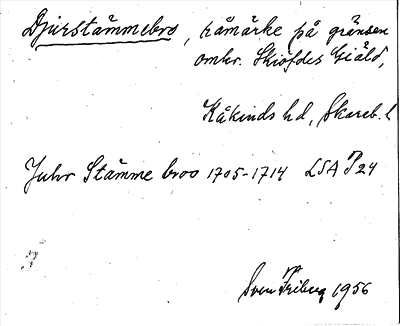 Djurstämmebro, råmärke på gränsen
omkr. Skiöfdes Giäld,
Kåkinds hd, Skarab. l
Juhr Stämme broo 1705-1714 LSA P24
Sven Friberg 1956